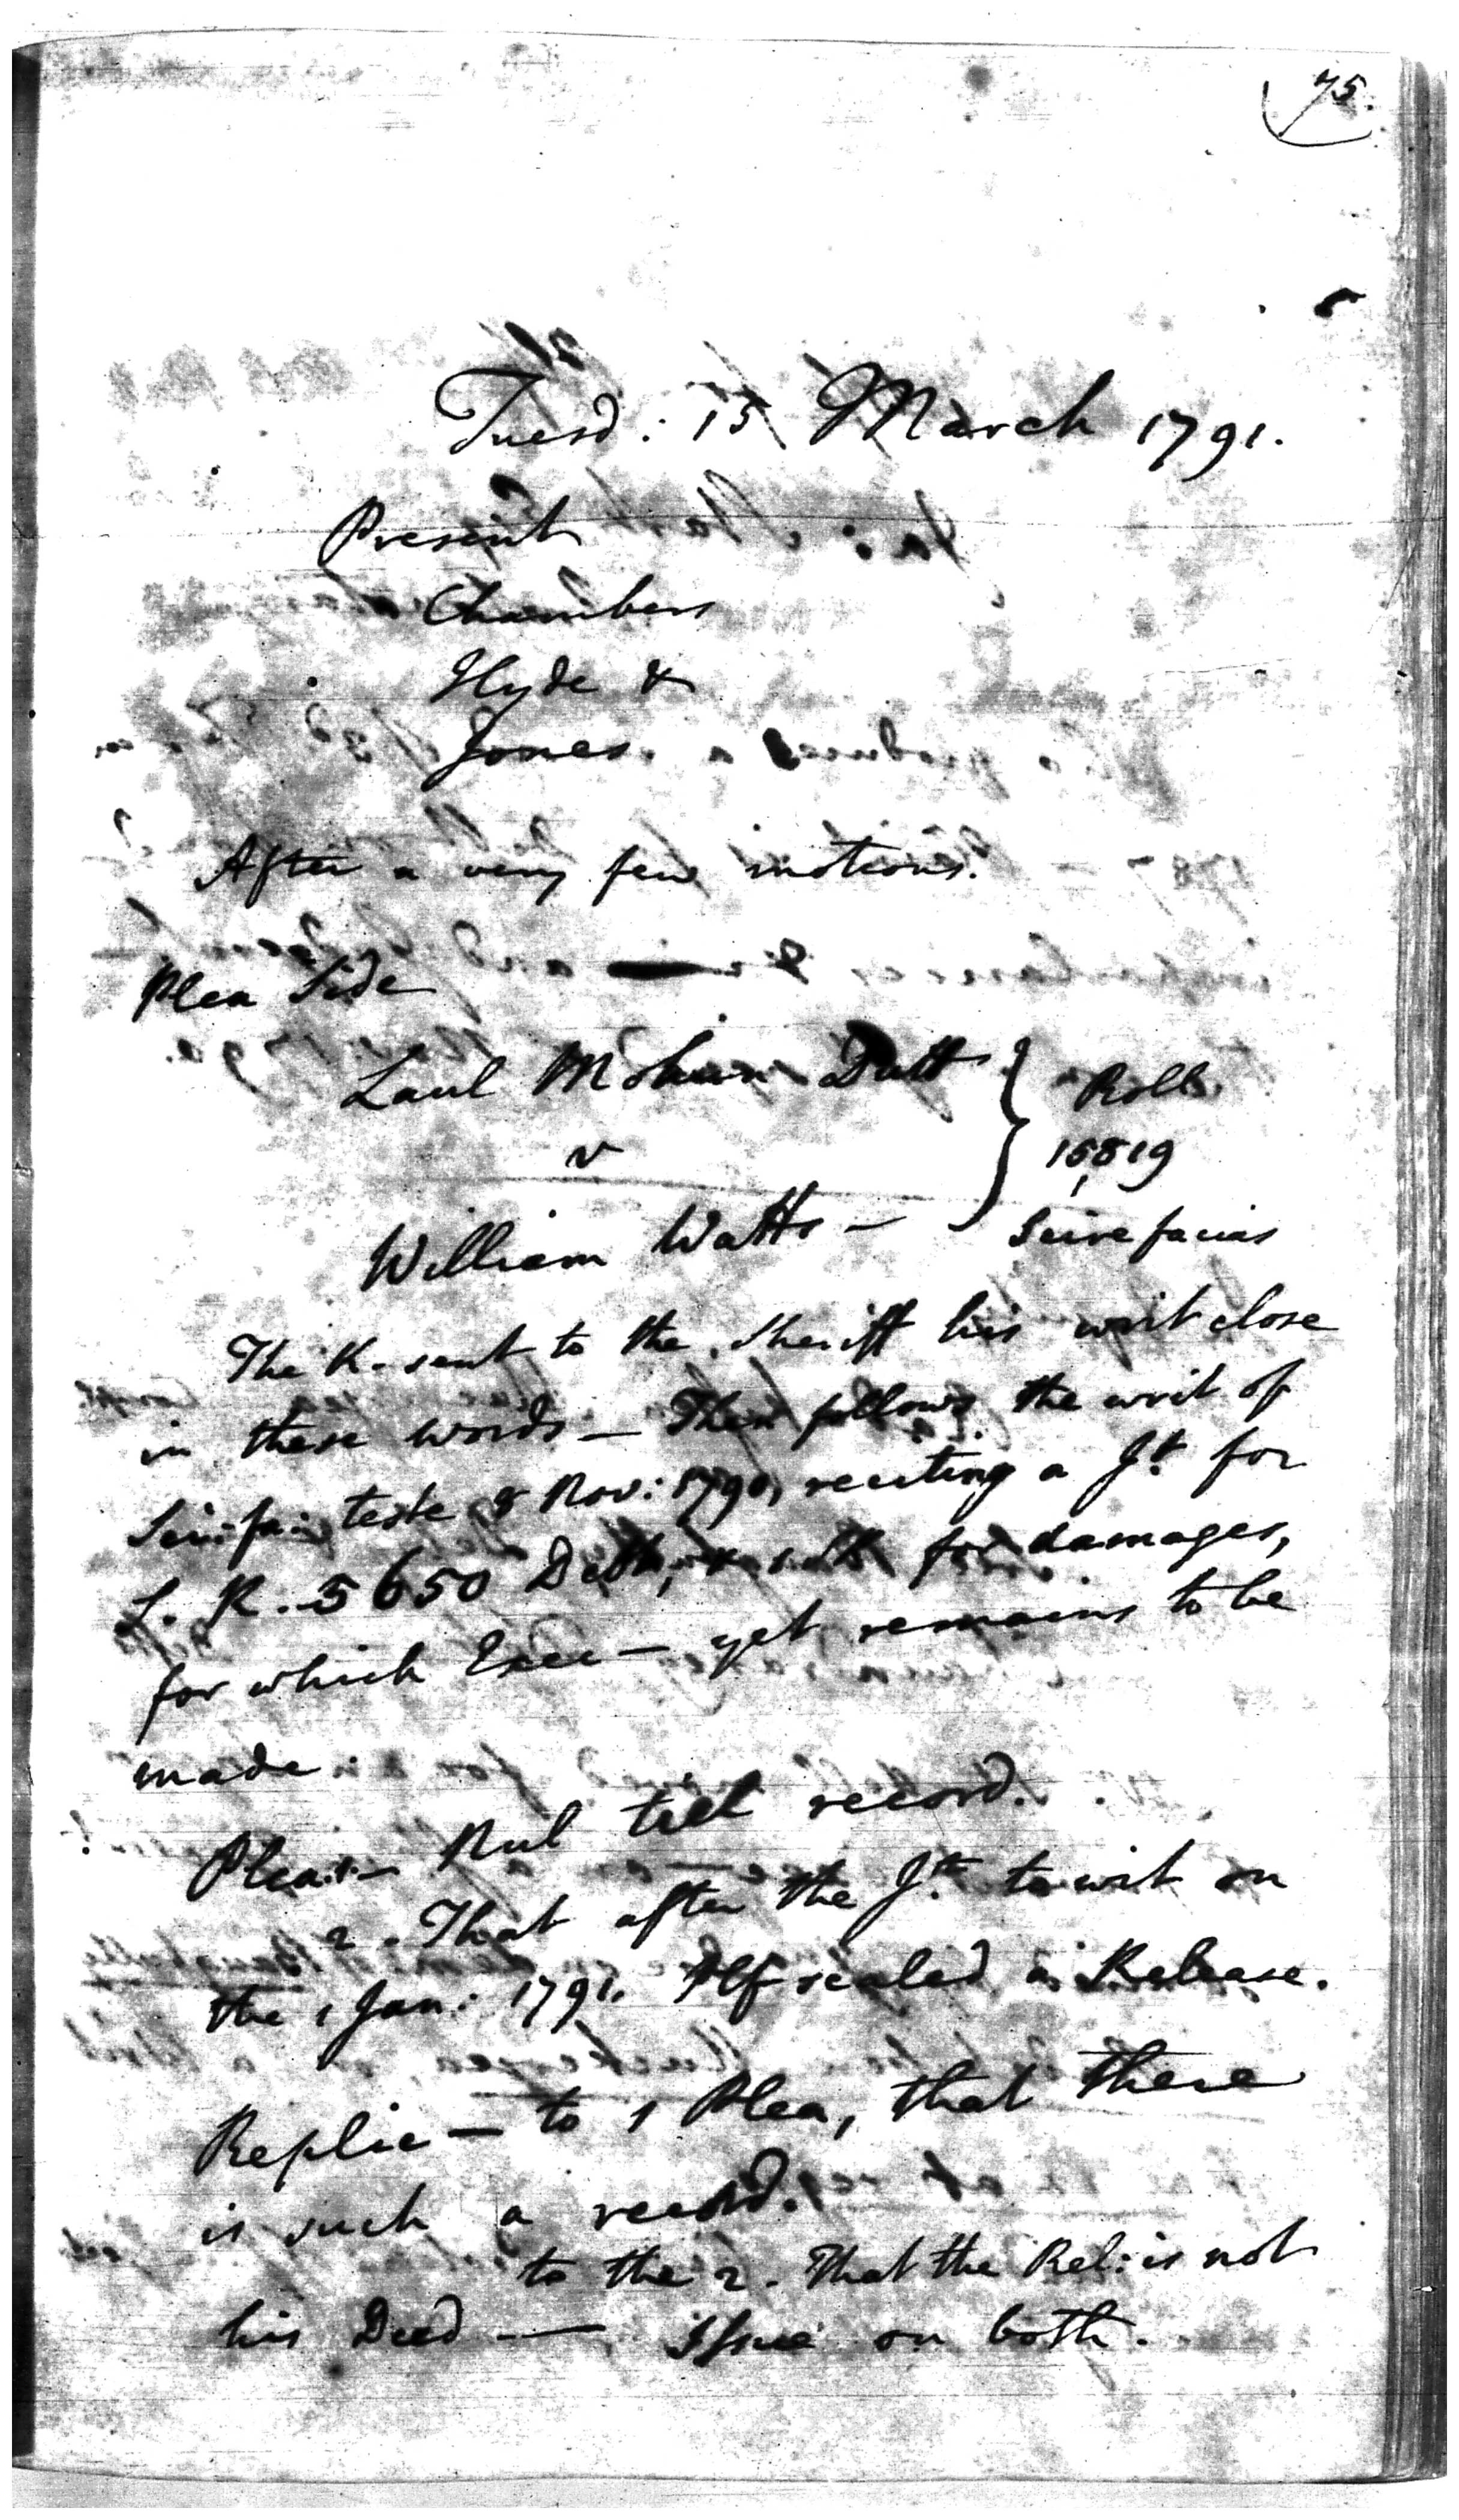 75.
Tuesd: 15 March 1791.
Present
Chambers
Hyde &
Jones.
After a very few motions.
Plea Side
Laul Mohun Dutt } Roll
v 15,819
William Watts — Scire facias
The K. sent to the Sheriff his writ close
in these words — Then follows the writ of
Sci: fa: teste 8 Nov: 1790, reciting a Jt. for
S. R. 5650 Debt, & for damages,
for which Exec— yet remains to be
made.
Plea: 1 — Nul tiel record.
2. That after the Jt. to wit on
the 1 Jan: 1791. Plf sealed a Release.
Replic— to 1 Plea, that there
is such a record.
to the 2. That the Rel: is not
his Deed — Issue on both.